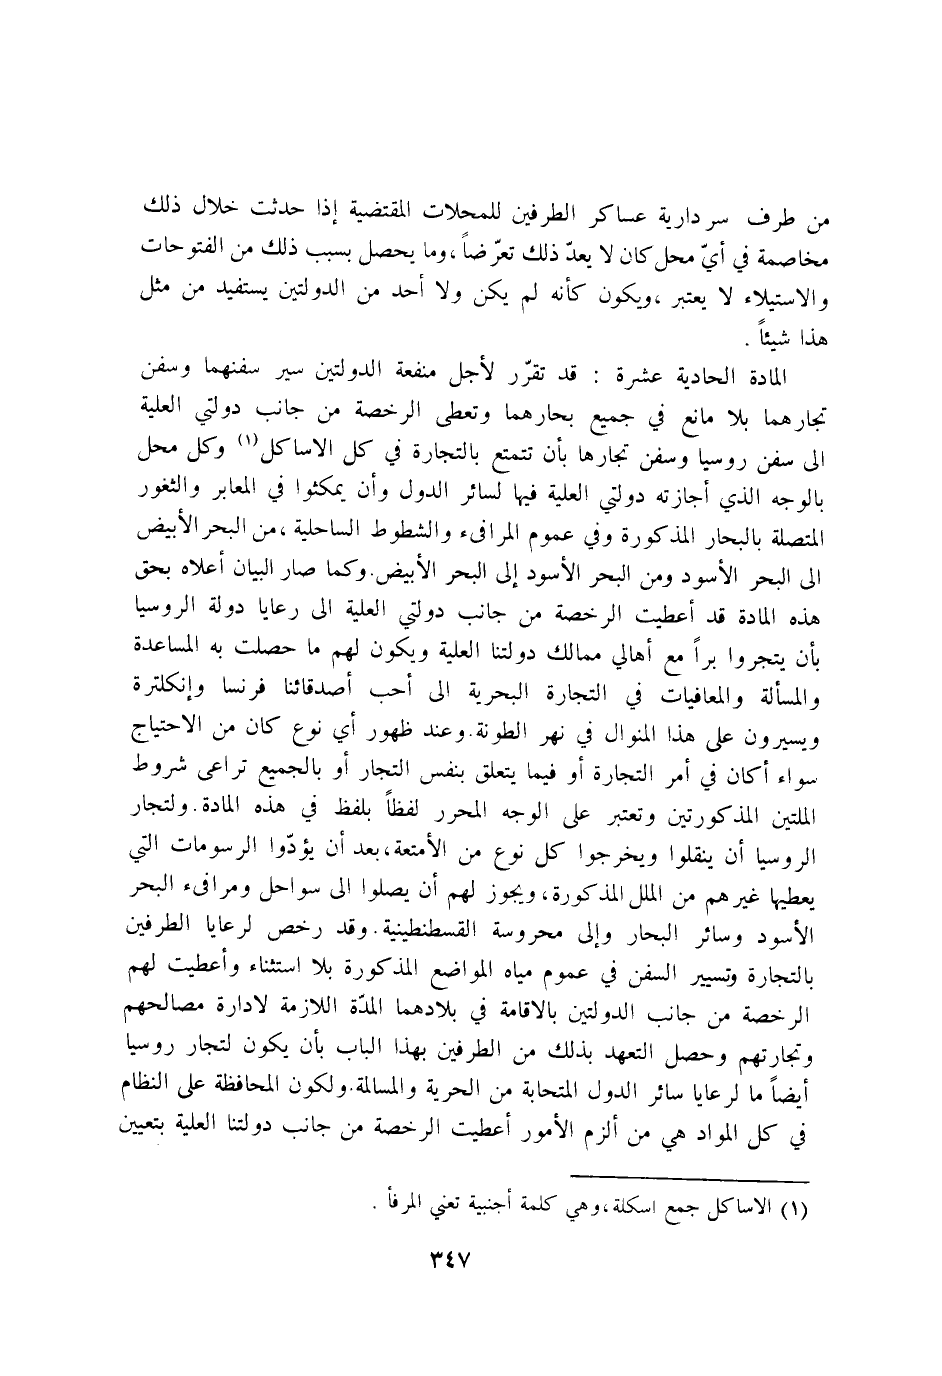 من طرف سردارية عساكر الطرفين للمحلات المقتضية إذا حدثت خلال ذلك
مخاصمة في أيّ محل كان لا يعدّ ذلك تعرّضاً ،وما يحصل بسبب ذلك من الفتوحات
والاستيلاء لا يعتبر ،ويكون كأنه لم يكن ولا أحد من الدولتين يستفيد من مثل
هذا شيئاً .
المادة الحادية عشرة : قد تقرّر لأجل منفعة الدولتين سير سفنهما وسفن
تجارهما بلا مانع في جميع بحارهما وتعطى الرخصة من جانب دولتي العلية
الى سفن روسيا وسفن تجارها بأن تتمتع بالتجارة في كل الاساكل(١) وكل محل
بالوجه الذي أجازته دولتي العلية فيها لسائر الدول وأن يمكثوا في المعابر والثغور
المتصلة بالبحار المذكورة وفي عموم المرافىء والشطوط الساحلية ،من البحر الأبيض
الى البحر الأسود ومن البحر الأسود إلى البحر الأبيض.وكما صار البيان أعلاه بحق
هذه المادة قد أعطيت الرخصة من جانب دولتي العلية الى رعايا دولة الروسيا
بأن يتجروا براً مع أهالي ممالك دولتنا العلية ويكون لهم ما حصلت به المساعدة
والمسألة والمعافيات في التجارة البحرية الى أحب أصدقائنا فرنسا وإنكلترة
ويسيرون على هذا المنوال في نهر الطونة.وعند ظهور أي نوع كان من الاحتياج
سواء أكان في أمر التجارة أو فيما يتعلق بنفس التجار أو بالجميع تراعى شروط
الملتين المذكورتين وتعتبر على الوجه المحرر لفظاً بلفظ في هذه المادة.ولتجار
الروسيا أن ينقلوا ويخرجوا كل نوع من الأمتعة،بعد أن يؤدّوا الرسومات التي
يعطيها غيرهم من الملل المذكورة، ويجوز لهم أن يصلوا الى سواحل ومرافىء البحر
الأسود وسائر البحار وإلى محروسة القسطنطينية.وقد رخص لرعايا الطرفين
بالتجارة وتسيير السفن في عموم مياه المواضع المذكورة بلا استثناء وأعطيت لهم
الرخصة من جانب الدولتين بالاقامة في بلادهما المدّة اللازمة لادارة مصالحهم
وتجارتهم وحصل التعهد بذلك من الطرفين بهذا الباب بأن يكون لتجار روسيا
أيضاً ما لرعايا سائر الدول المتحابة من الحرية والمسالمة.ولكون المحافظة على النظام
في كل المواد هي من ألزم الأمور أعطيت الرخصة من جانب دولتنا العلية بتعيين
(١) الاساكل جمع اسكلة،وهي كلمة أجنبية تعني المرفأ .
٣٤٧